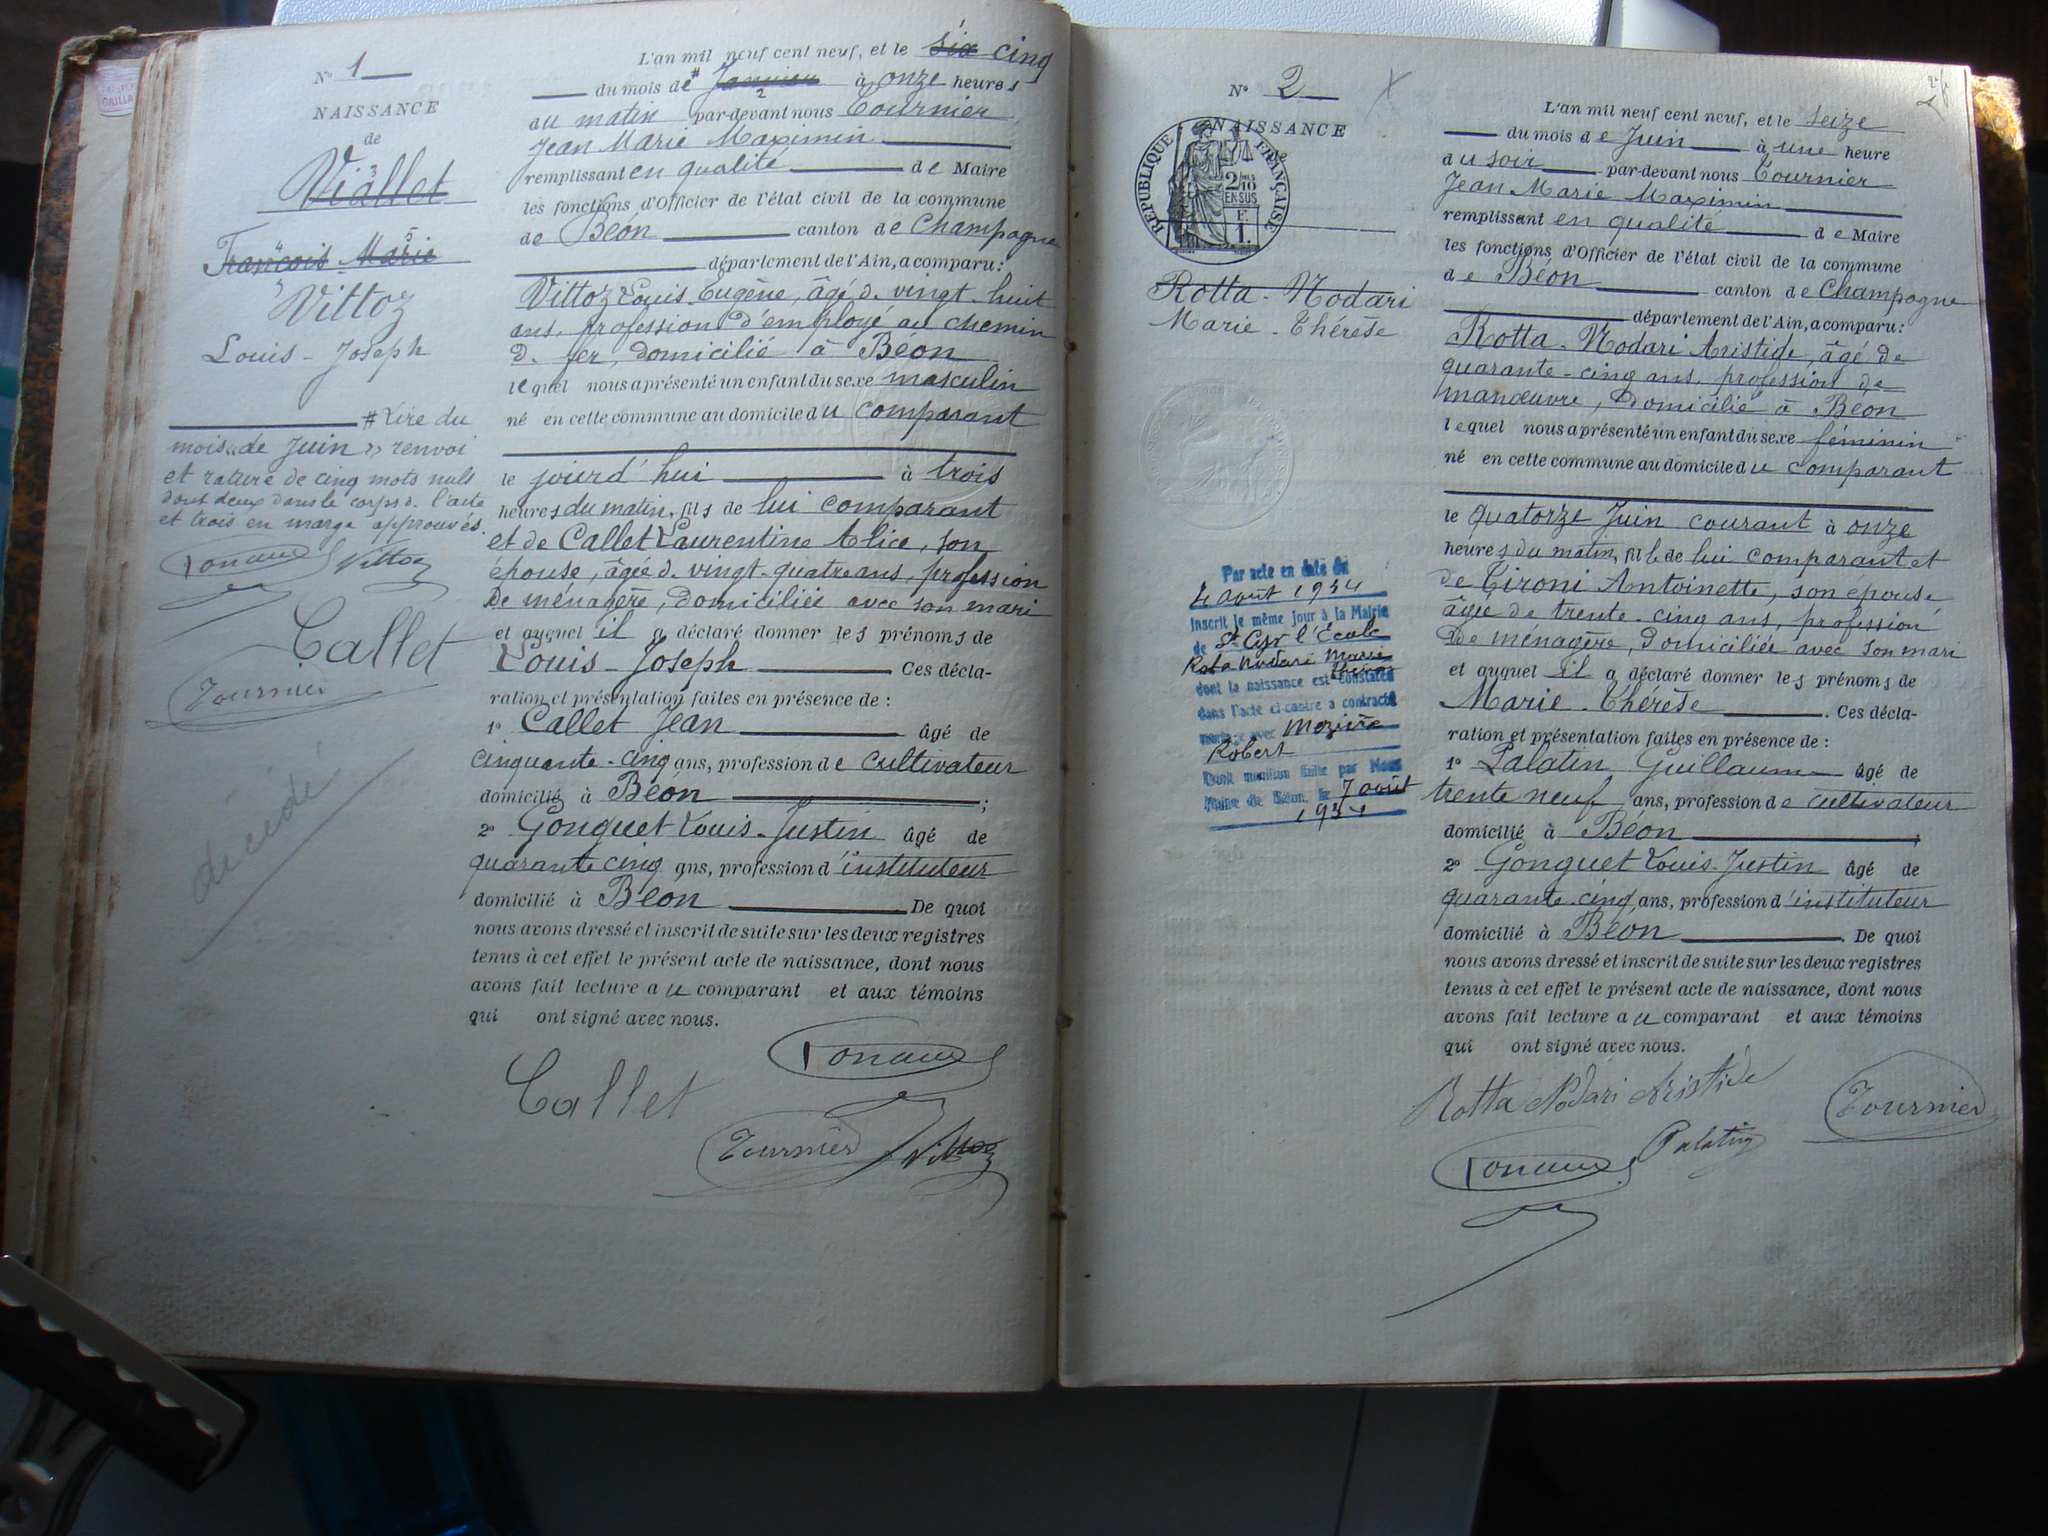 N° 1
NAISSANCE
de
Viallet
3
François Marie
4 5
Vittoz
Louis-Joseph
# Lire du
mois « de Juin » renvoi
et rature de cinq mots nuls
dont deux dans le corps d. l'acte
et trois en marge approuvés.
Vittoz
Callet
Tournier
décédé
L'an mil neuf cent neuf, et le six cinq
du mois de # Janvier à onze heures
2
du matin par-devant nous Tournier
Jean Marie Maximin
remplissant en qualité de Maire
les fonctions d'Officier de l'état civil de la commune
de Béon canton de Champagne
département de l'Ain, a comparu :
Vittoz Louis Eugène, âgé d. vingt-huit
ans, profession d'employé au chemin
d. fer, domicilié à Béon
lequel nous a présenté un enfant du sexe masculin
né en cette commune au domicile du comparant
le jourd'hui à trois
heures du matin, fils de lui comparant
et de Callet Laurentine Alice, son
épouse, âgée d. vingt-quatre ans, profession
de ménagère, domiciliée avec son mari
et auquel il a déclaré donner les prénoms de
Louis-Joseph Ces décla-
ration et présentation faites en présence de :
1° Callet Jean âgé de
cinquante-cinq ans, profession de cultivateur
domicilié à Béon ;
2° Gonguet Louis-Justin âgé de
quarante cinq ans, profession d'instituteur
domicilié à Béon De quoi
nous avons dressé et inscrit de suite sur les deux registres
tenus à cet effet le présent acte de naissance, dont nous
avons fait lecture au comparant et aux témoins
qui ont signé avec nous.
Callet
Tournier Vittoz
N° 2
NAISSANCE
de
RÉPUBLIQUE FRANÇAISE
2/10
EN SUS
Rotta-Nodari
Marie-Thérèse
Par acte en date du
4 août 1934
inscrit le même jour à la Mairie
de St Cyr l'École
Rota Nodari Marie
Thérèse
dont la naissance est constatée
dans l'acte ci-contre a contracté
mariage avec Mozière
Robert
Dont mention faite par Nous
Maire de Béon le 7 août
1934
L'an mil neuf cent neuf, et le seize
du mois de Juin à une heure
du soir par-devant nous Tournier
Jean Marie Maximin
remplissant en qualité de Maire
les fonctions d'Officier de l'état civil de la commune
de Béon canton de Champagne
département de l'Ain, a comparu :
Rotta-Nodari Aristide, âgé de
quarante-cinq ans, profession de
manœuvre, domicilié à Béon
lequel nous a présenté un enfant du sexe féminin
né en cette commune au domicile du comparant
le quatorze Juin courant à onze
heures du matin, fille de lui comparant et
de Tironi Antoinette, son épouse
âgée de trente-cinq ans, profession
de ménagère, domiciliée avec son mari
et auquel il a déclaré donner les prénoms de
Marie-Thérèse. Ces décla-
ration et présentation faites en présence de :
1° Palatin Guillaume âgé de
trente neuf ans, profession de cultivateur
domicilié à Béon ;
2° Gonguet Louis-Justin âgé de
quarante-cinq ans, profession d'instituteur
domicilié à Béon. De quoi
nous avons dressé et inscrit de suite sur les deux registres
tenus à cet effet le présent acte de naissance, dont nous
avons fait lecture au comparant et aux témoins
qui ont signé avec nous.
Rotta Nodari Aristide
Tournier
Palatin